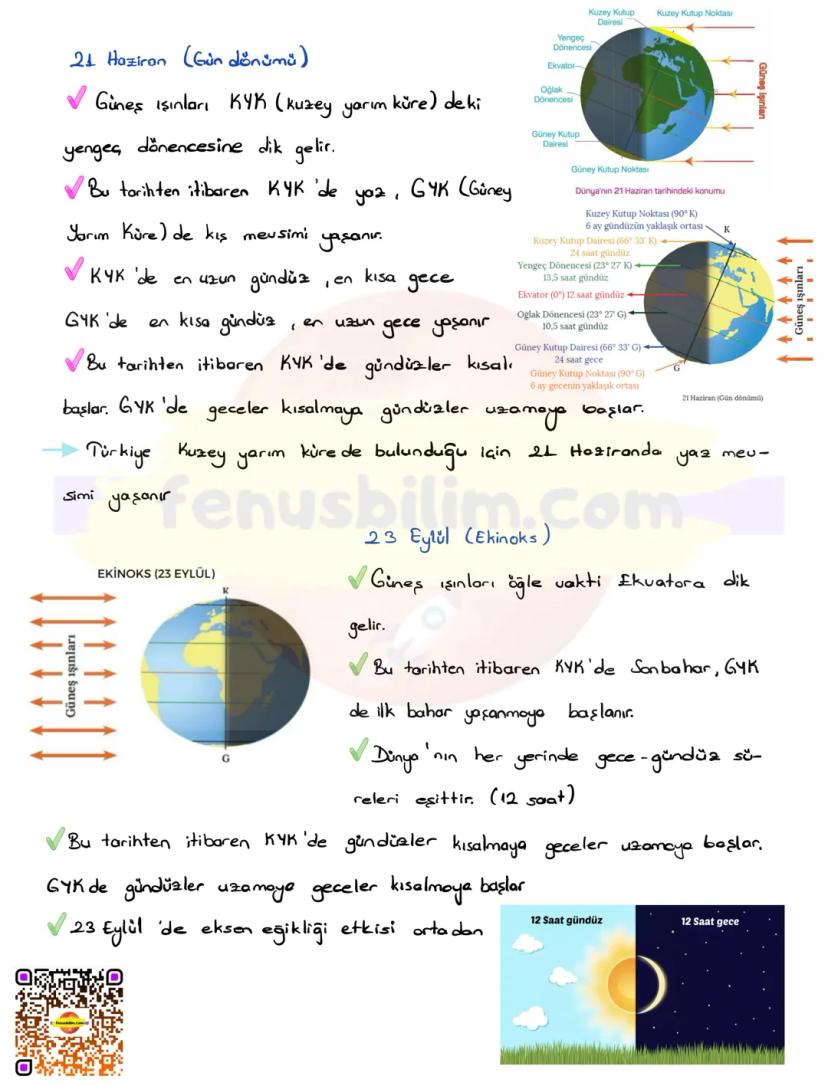 21 Haziran (Gün dönümü)
Güneş ışınları KYK (kuzey yarım küre) deki
yengeç dönencesine dik gelir.
Bu tarihten itibaren KYK 'de yaz, GYK (Güney
Yarım Küre) de kış mevsimi yaşanır.
KYK 'de en uzun gündüz, en kısa gece
GYK 'de en kısa gündüz, en uzun gece yaşanır
Bu tarihten itibaren KYK 'de gündüzler
başlar. GYK 'de geceler kısalmaya gündüzler uzamaya başlar.
Türkiye Kuzey yarım kürede bulunduğu için 21 Haziranda yaz mev-
simi yaşanır
Kuzey Kutup
Dairesi
Kuzey Kutup Noktası
Yengeç
Dönencesi
Ekvator
Oğlak
Dönencesi
Güney Kutup
Dairesi
Güney Kutup Noktası
Güneş Işınları
Dünya'nın 21 Haziran tarihindeki konumu
Kuzey Kutup Noktası (90° K)
6 ay gündüzün yaklaşık ortası
K
Kuzey Kutup Dairesi (66° 33' K)
24 saat gündüz
Yengeç Dönencesi (23° 27' K)
13,5 saat gündüz
Ekvator (0°) 12 saat gündüz
Oğlak Dönencesi (23° 27' G)
10,5 saat gündüz
Güney Kutup Dairesi (66° 33' G)
24 saat gece
Güney Kutup Noktası (90° G)
6 ay gecenin yaklaşık ortası
G
Güneş ışınları
21 Haziran (Gün dönümü)
fenusbilim.com
23 Eylül (Ekinoks)
Güneş ışınları öğle vakti Ekvatora dik
gelir.
Bu tarihten itibaren KYK'de Sonbahar, GYK
de ilk bahar yaşanmaya başlanır.
Dünya 'nın her yerinde gece-gündüz sü-
releri eşittir. (12 saat)
EKİNOKS (23 EYLÜL)
K
Güneş ışınları
G
Bu tarihten itibaren KYK 'de gündüzler kısalmaya geceler uzamaya başlar.
GYK de gündüzler uzamaya geceler kısalmaya başlar
23 Eylül 'de eksen eğikliği etkisi ortadan
12 Saat gündüz
12 Saat gece
Fenusbilim.com